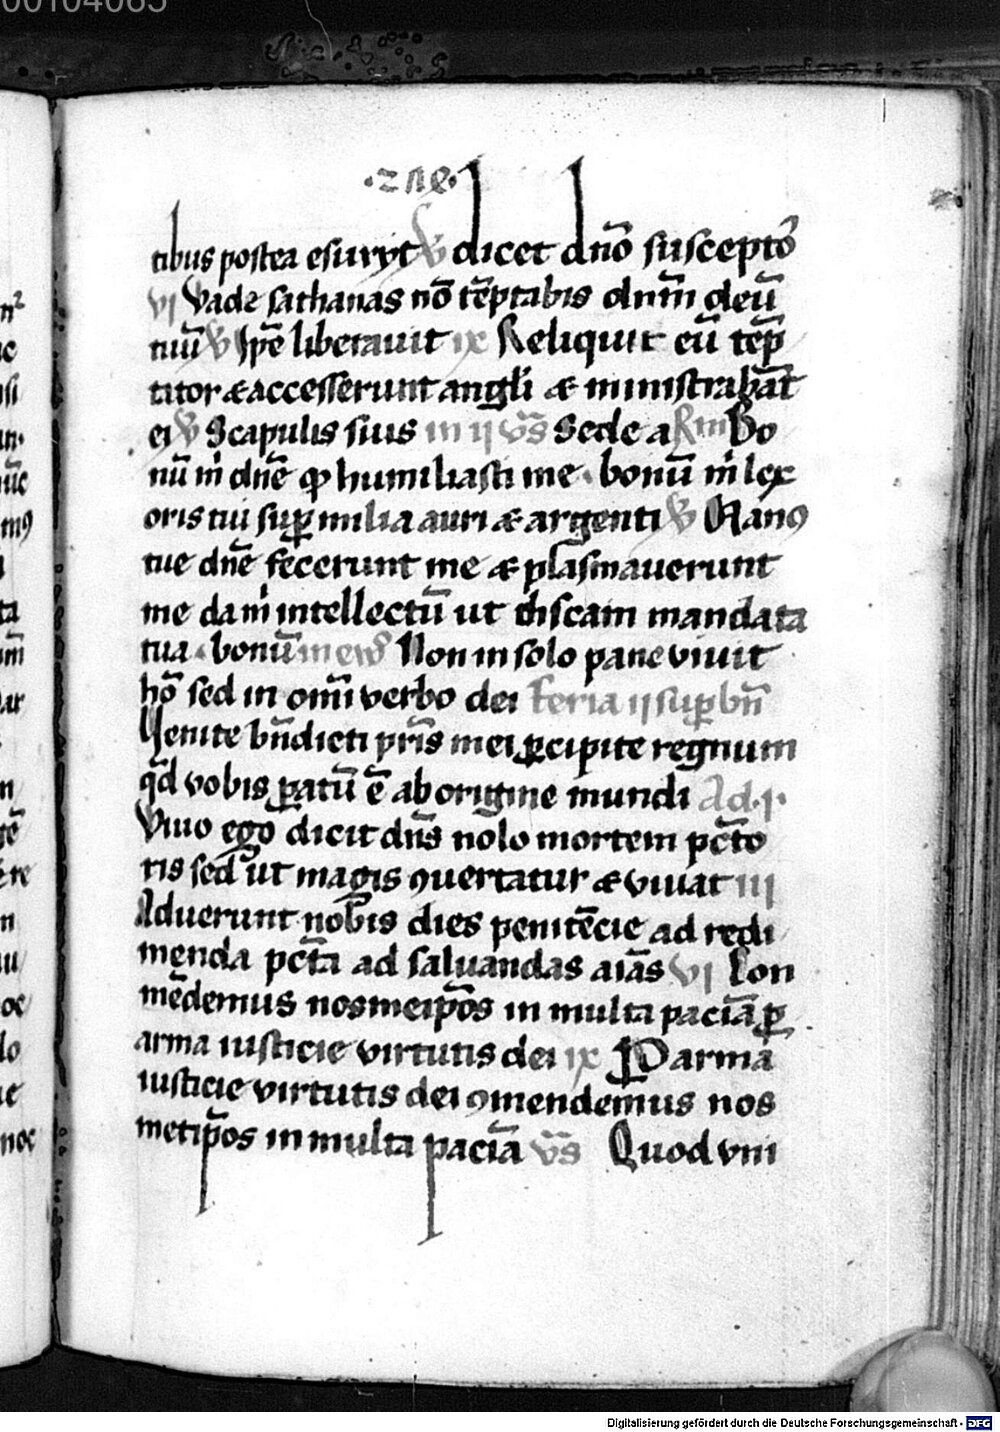 00104065
tibus postea esuryt ℣ dicet dn̄o suscepto᷒
vi Vade sathanas nō tēptabis dnm̄ deū
tuū ℣ Ip̄e liberauit ix Reliquit eū tēp
tator & accesserunt angl'i & ministrabāt
ei ℣ Scapulis suis in ij vs̄ Sede a Bo
nū m̄ dnē ꝙ humiliasti me · bonū m̄ lex
oris tui sup̄ milia auri & argenti ℣ Manꝰ
tue dnē fecerunt me & plasmauerunt
me da m̄ intellectū ut discam mandata
tua · bonū Non in solo pane viuit
hō sed in om̄i verbo dei Feria ij sup bn̄
Uenite bn̄dicti pr̄is mei ꝑcipite regnum
qd̄ vobis ꝑatū ē ab origine mundi Ad · j ·
Viuo ego dicit dn̄s nolo mortem pc̄to
ris sed ut magis ꝯuertatur & viuat iii
Aduerunt nobis dies penitēcie ad redi
menda pc̄ta ad saluandas aīas vi Con
mēdemus nosmeip̄os in multa paciā ꝑ
arma iusticie virtutis dei ix ꝑ arma
iusticie virtutis dei ꝯmendemus nos
metip̄os in multa paciā vs̄ Quod vni
Digitalisierung gefördert durch die Deutsche Forschungsgemeinschaft - DFG